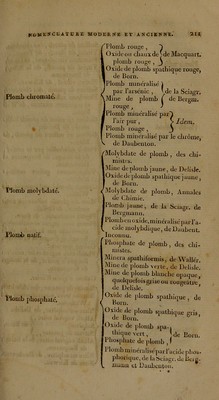 NOMENCLATURE MODERNE ET ANCIENNE.
Plomb rouge,
Oxide ou chaux de } de Macquart.
plomb rouge,
Oxide de plomb spathique rouge,
de Born.
Plomb minéralisé
par l'arsénic, } de la Sciagr.
Plomb chromaté.
Mine de plomb } de Bergm.
rouge,
Plomb minéralisé par
l'air pur, } Idem.
Plomb rouge,
Plomb minéralisé par le chrôme,
de Daubenton.
Molybdate de plomb, des chimistes.
Mine de plomb jaune, de Delisle.
Oxide de plomb spathique jaune,
de Born.
Plomb molybdaté.
Molybdate de plomb, Annales
de Chimie.
Plomb jaune, de la Sciagr. de
Bergmann.
Plomb en oxide, minéralisé par l'acide
molybdique, de Daubent.
Plomb natif.
Inconnu.
Phosphate de plomb, des chimistes.
Minera spathiformis, de Waller.
Mine de plomb verte, de Delisle.
Mine de plomb blanche opaque,
quelquefois grise ou rougeâtre,
de Delisle.
Plomb phosphaté.
Oxide de plomb spathique, de
Born.
Oxide de plomb spathique gris,
de Born.
Oxide de plomb spathique
vert, } de Born.
Phosphate de plomb,
Plomb minéralisé par l'acide phosphorique,
de la Sciagr. de Bergmann
et Daubenton.